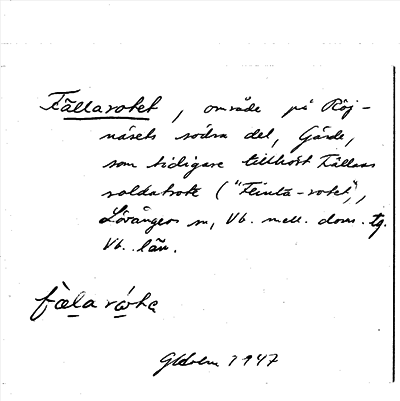 Fällarotet, område på Röj-
näsets södra del, Gärde,
som tidigare tillhört Fällans
soldatrote ("Flinta-rotet"),
Lövångers sn, Vb. mell. doms. tg.
Vb. län.
GHolm 1947